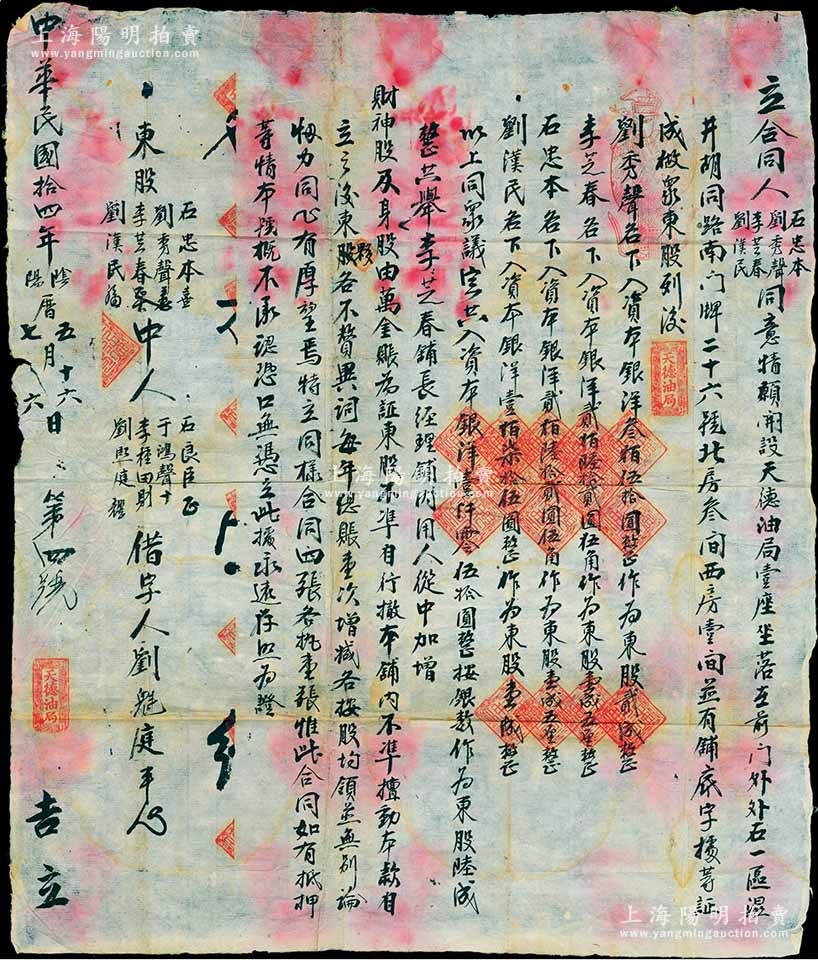 立合同人石忠本劉秀聲李芝春劉漢民同意情願開設天德油局壹座坐落在前门外外右一區湿
井胡同路南门牌二十六號北房叁间西房壹间並有鋪底字據等証
成做衆東股列後
劉秀聲名下入資本銀洋叁佰伍拾圓整作為東股貳成整
李芝春名下入資本銀洋貳佰陸拾貳圓伍角作為東股壹成五厘整
石忠本名下入資本銀洋貳佰陸拾貳圓伍角作為東股壹成五厘整
劉漢民名下入資本銀洋壹佰柒拾伍圓整作為東股壹成整
以上同衆議定共入資本銀洋壹仟零伍拾圓整按銀数作為東股陸成
整共舉李芝春鋪長经理鋪内用人從中加增
財神股及身股由萬金賬為証東股不準自行撤本鋪内不準擅動本款自
立之後東夥股各不贅異词每年總賬壹次增减各按股均領並無别論
協力同心有厚望焉特立同様合同四張各执壹張惟此合同如有抵押
等情本號概不承認恐口無憑立此據永遠存照為證
東股石忠本劉秀聲李芝春劉漢民
中人石良臣于鴻聲李桂田劉熙庭
借字人劉魁庭
中華民國拾四年陰陽曆五月十六日七六
第四號
吉立
天德油局
天德油局
上海陽明拍賣
www.yangmingauction.com
上海陽明拍賣
www.yangmingauction.com
上海陽明拍賣
www.yangmingauction.com